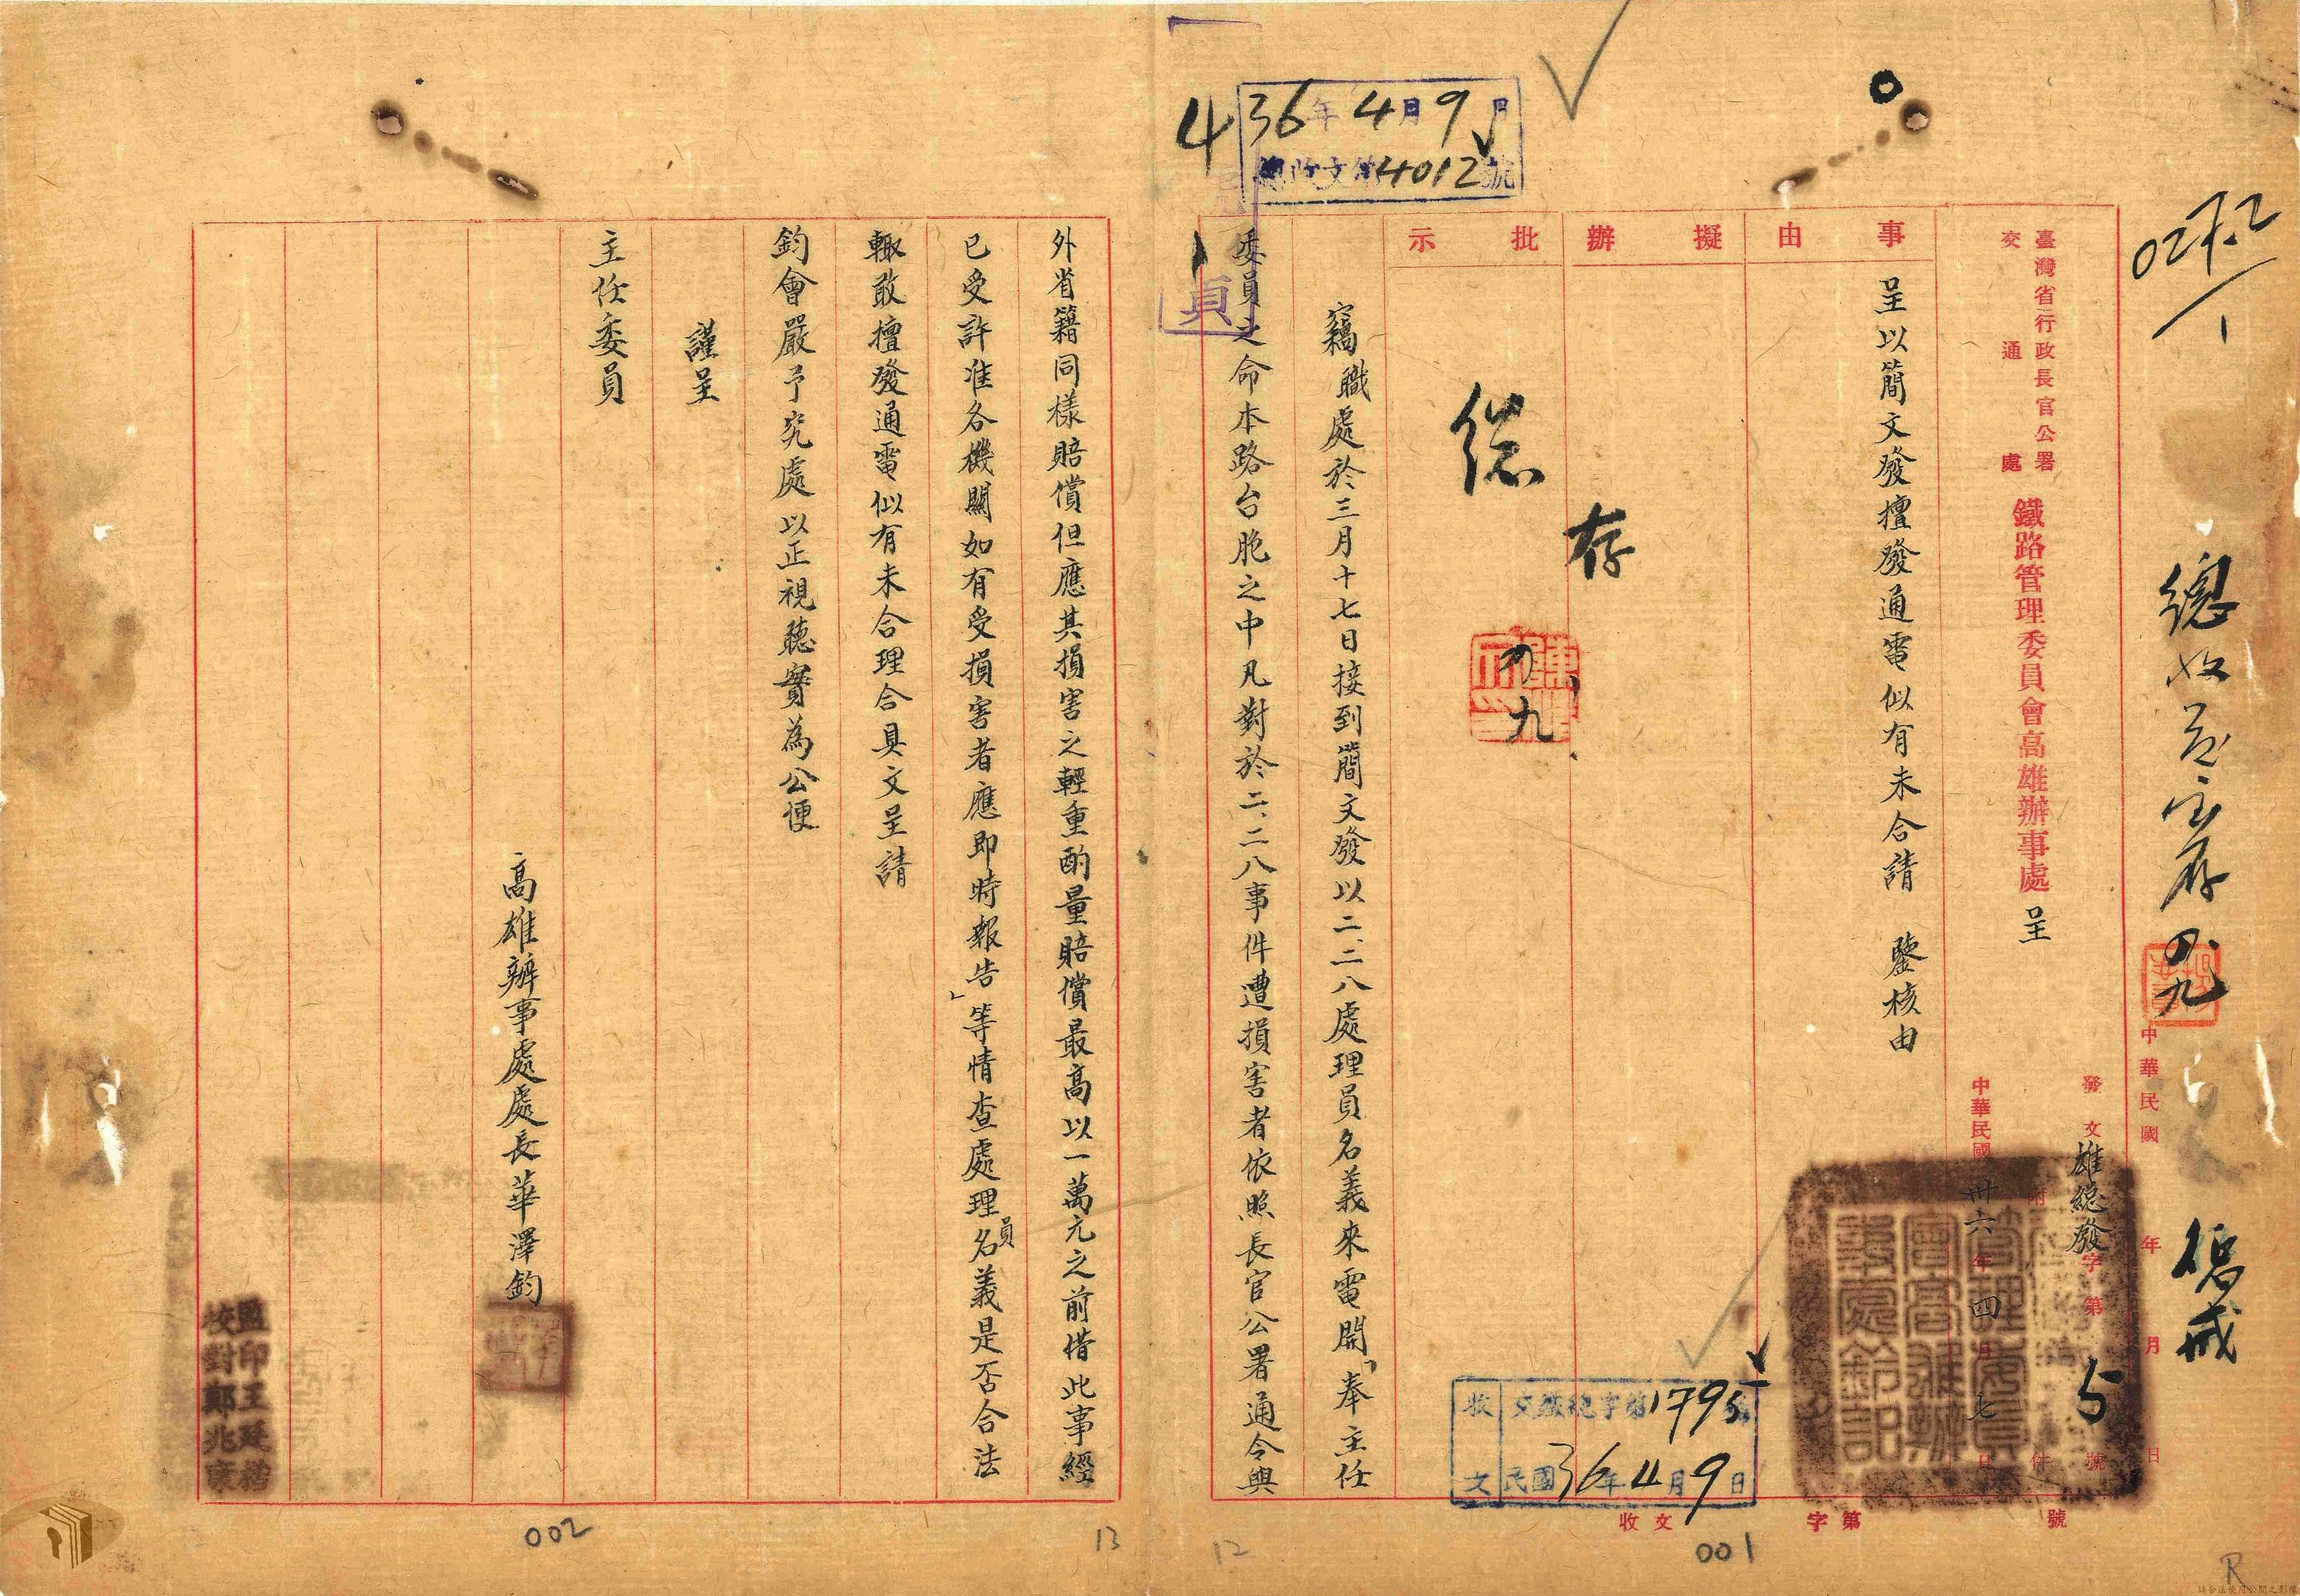 027.2
1
總收文宜存
四九
臺灣省行政長官公署
交通處
鐵路管理委員會高雄辦事處 呈
發文 雄總發 字第 5 號
附 件
中華民國 卅六 年 四 月 七 日
中華民國 年 月 日
事由
呈以簡文發擅發通電似有未合請 鑒核由
擬辦
存
批示
總
四、九、
竊職處於三月十七日接到簡文發以二、二八處理員名義來電開「奉主任
委員之命本路台胞之中凡對於二、二八事件遭損害者依照長官公署通令與
外省籍同樣賠償但應其損害之輕重酌量賠償最高以一萬元之前借此事經
已受許准各機關如有受損害者應即時報告」等情查處理員名義是否合法
輙敢擅發通電似有未合理合具文呈請
鈞會嚴予究處以正視聽實為公便
謹呈
主任委員
高雄辦事處處長華澤鈞
監印王廷楷
校對鄭兆
4
36年4月9日
總收文第4012號
頁
收文
文鐵總字第1795號
民國36年4月9日
收文 字第 號
001
12
13
002
R